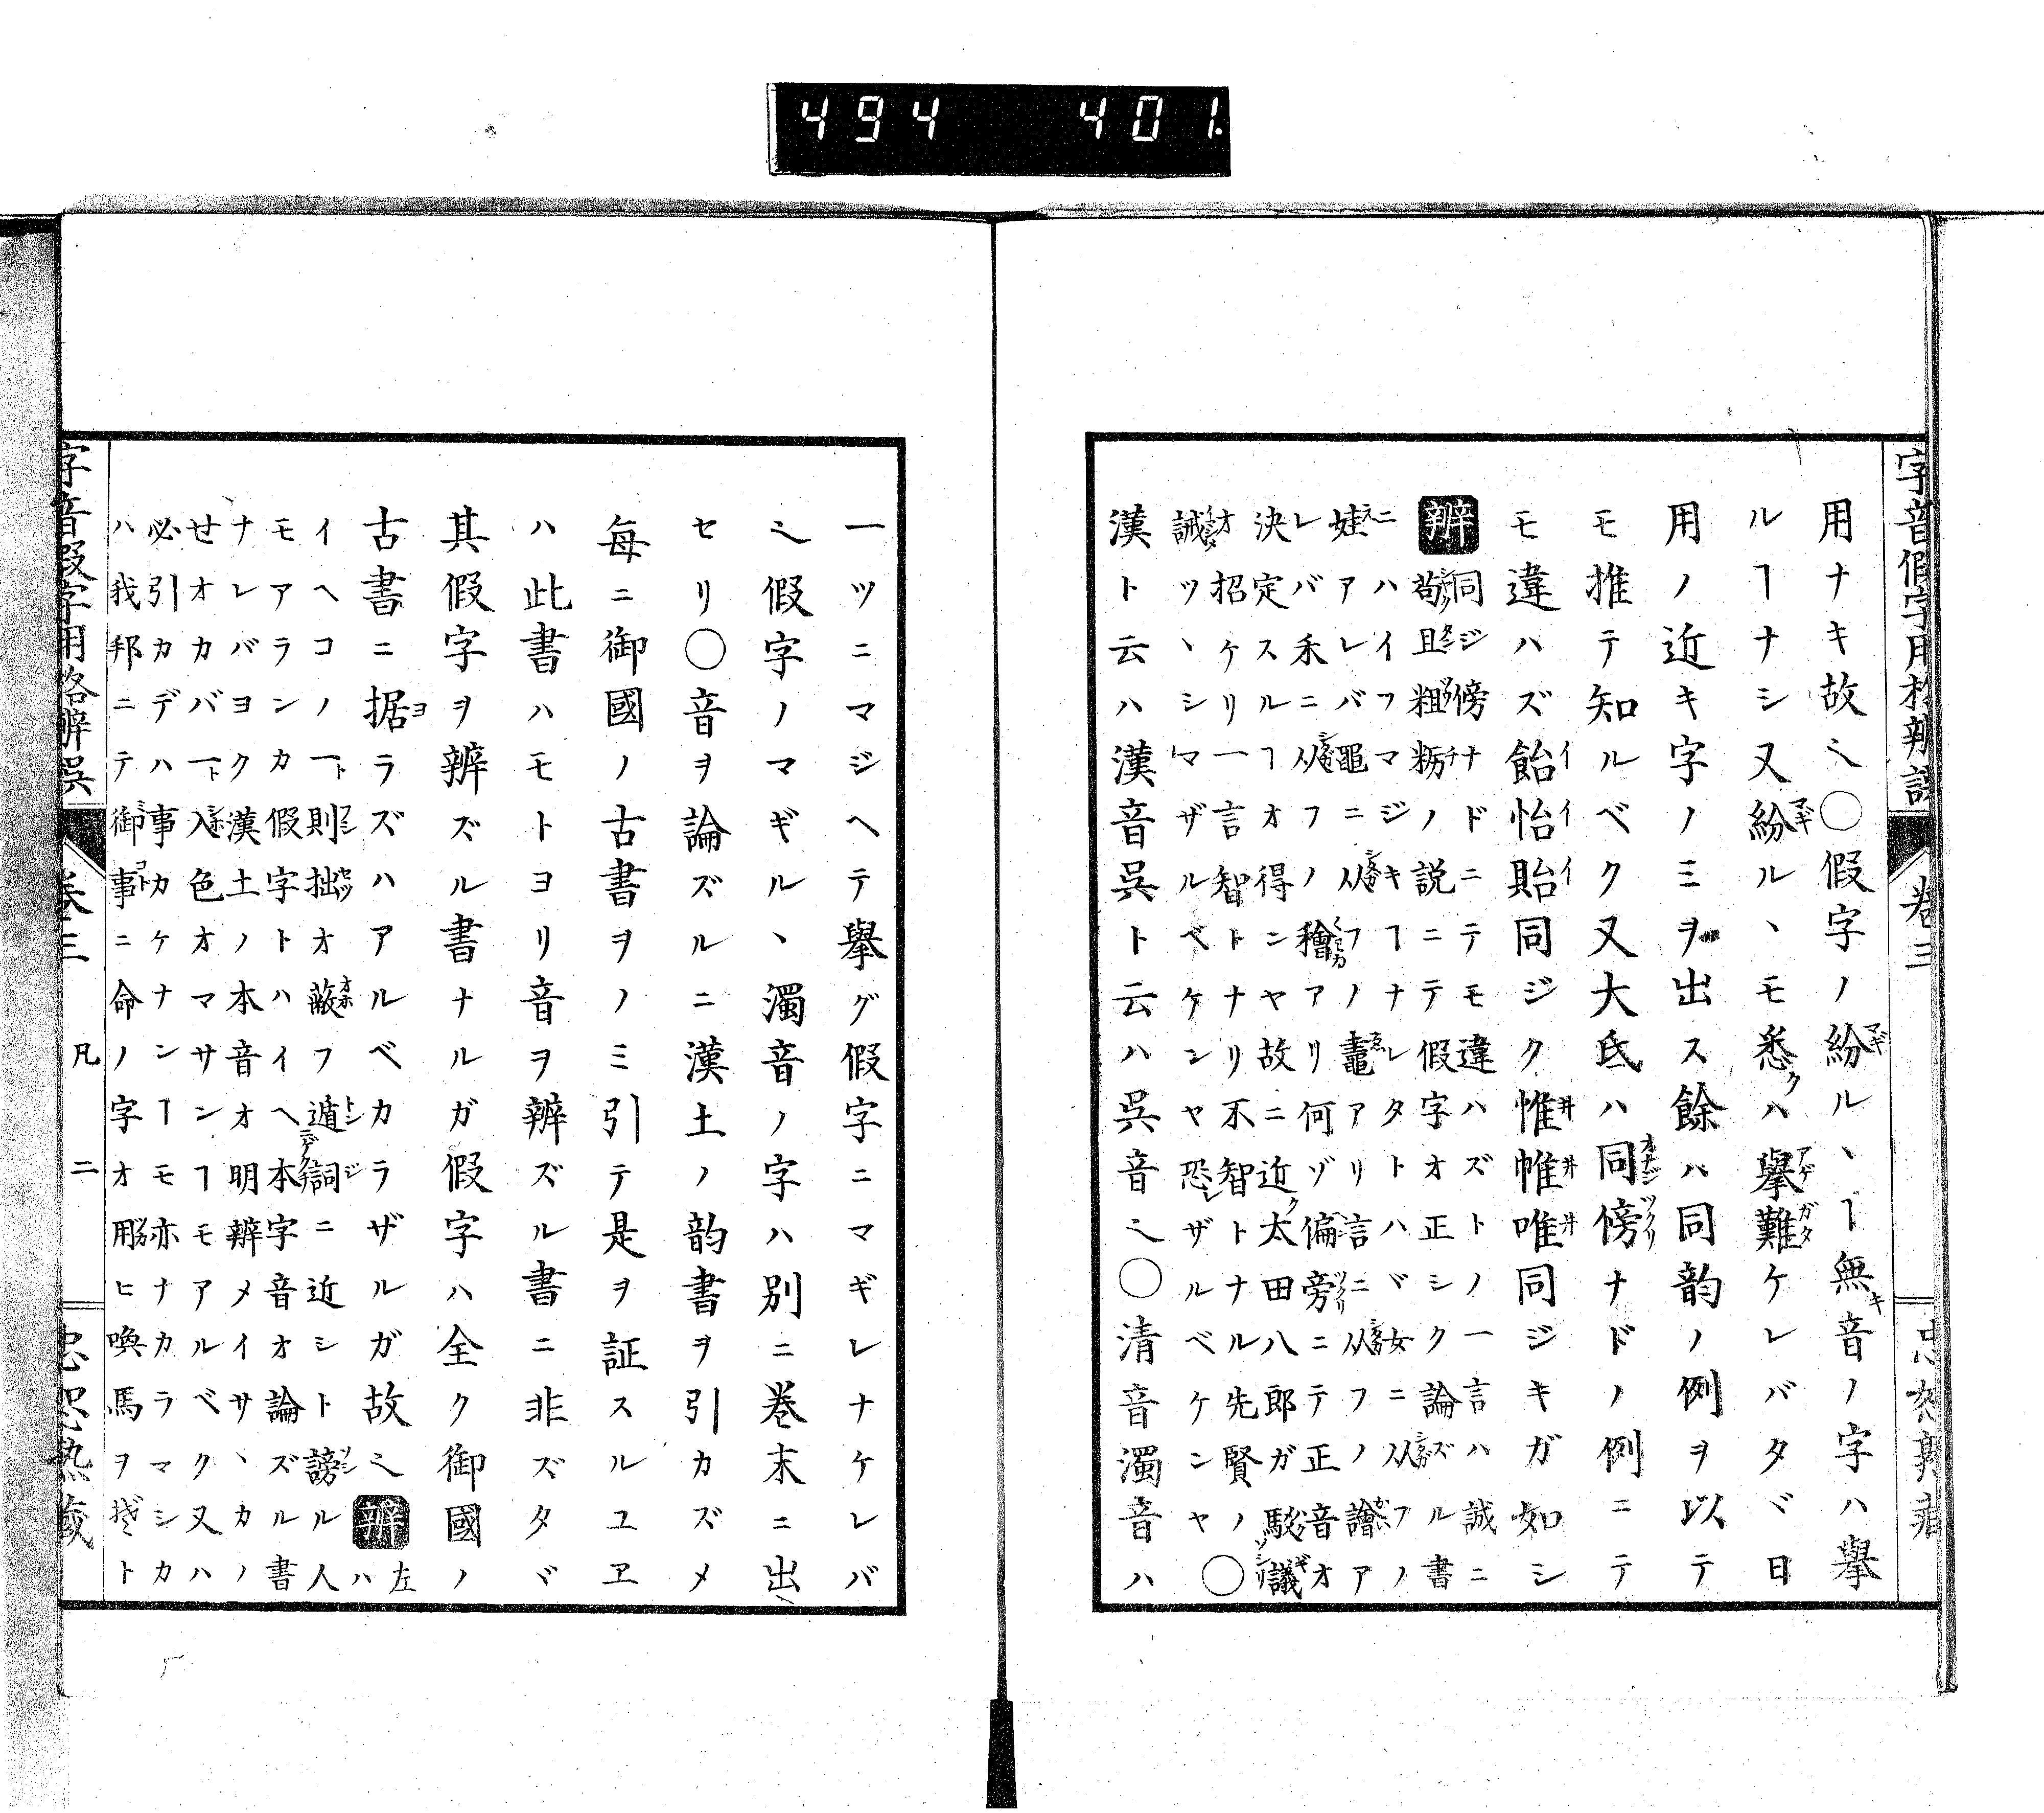 494 401.
字音假字用格辨誤
卷三
忠恕熟藏
用ナキ故ヘ〇假字ノ紛ルヽヿ無キ音ノ字ハ擧
ルヿナシ又紛ルヽモ悉クハ擧難ケレバタヾ日
用ノ近キ字ノミヲ出ス餘ハ同韵ノ例ヲ以テ
モ推テ知ルベク又大氐ハ同傍ナドノ例ニテ
モ違ハズ飴怡貽同ジク惟帷唯同ジキガ如シ
辨同ジ傍ナドニテモ違ハズトノ一言ハ誠ニ
苟且粗粝ノ説ニテ假字オ正シク論ズル書
ニハイフマジキヿナレタトハヾ女ニ从フノ
娃アレバ黽ニ从フノ鼃アリ言ニ从フノ譮ア
レバ禾ニ从フノ穭アリ何ゾ偏旁ニテ正音オ
決定スルヿオ得ンヤ故ニ近ク太田八郎ガ駁議
オ招ケリ一言智トナリ不智トナル先賢ノ
誡ツヽシマザルベケンヤ恐レザルベケンヤ〇
漢ト云ハ漢音呉ト云ハ呉音ヘ〇清音濁音ハ
一ツニマジヘテ擧グ假字ニマギレナケレバ
ヘ假字ノマギルヽ濁音ノ字ハ別ニ卷末ニ出
セリ〇音ヲ論ズルニ漢土ノ韵書ヲ引カズメ
毎ニ御國ノ古書ヲノミ引テ是ヲ証スルユヱ
ハ此書ハモトヨリ音ヲ辨ズル書ニ非ズタヾ
其假字ヲ辨ズル書ナルガ假字ハ全ク御國ノ
古書ニ据ラズハアルベカラザルガ故ヘ辨左ハ
イヘコノ一則拙オ蔽フ遁詞ニ近シト謗ル人
モアランカ假字トハイヘ本字音オ論ズル書
ナレバヨク漢土ノ本音オ明辨メイサヽカノ
せオカバ一入色オマサンヿモアルベク又ハ
必引カデハ事カケナンヿモ亦ナカラマシカ
ハ我邦ニテ御事ニ命ノ字オ用ヒ喚馬ヲ搓ト
字音假字用格辨誤
卷三
凡
二
忠恕熟藏